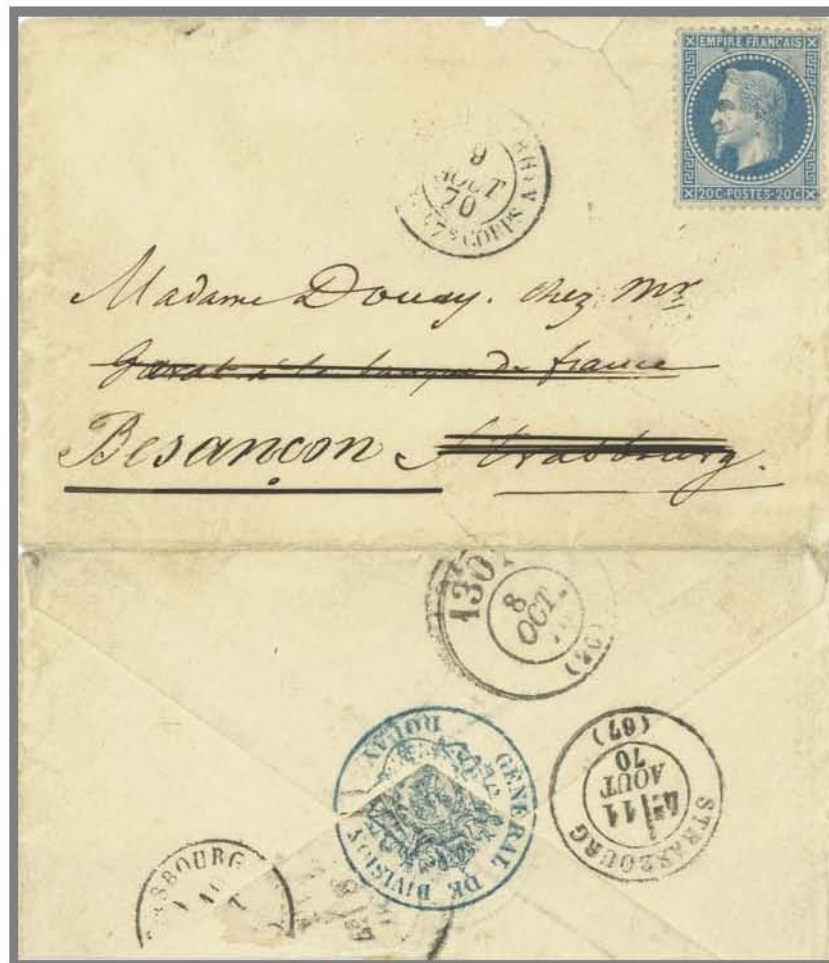 EMPIRE FRANÇAIS
20C·POSTES·20C
9
AOUT
70
7e CORPS
Madame Douay. chez Mr
à la banque de france
Besançon Strasbourg.
130
8
OCT.
GENERAL DE DIVISION
STRASBOURG
4E 11
AOUT
70
(67)
SBOURG